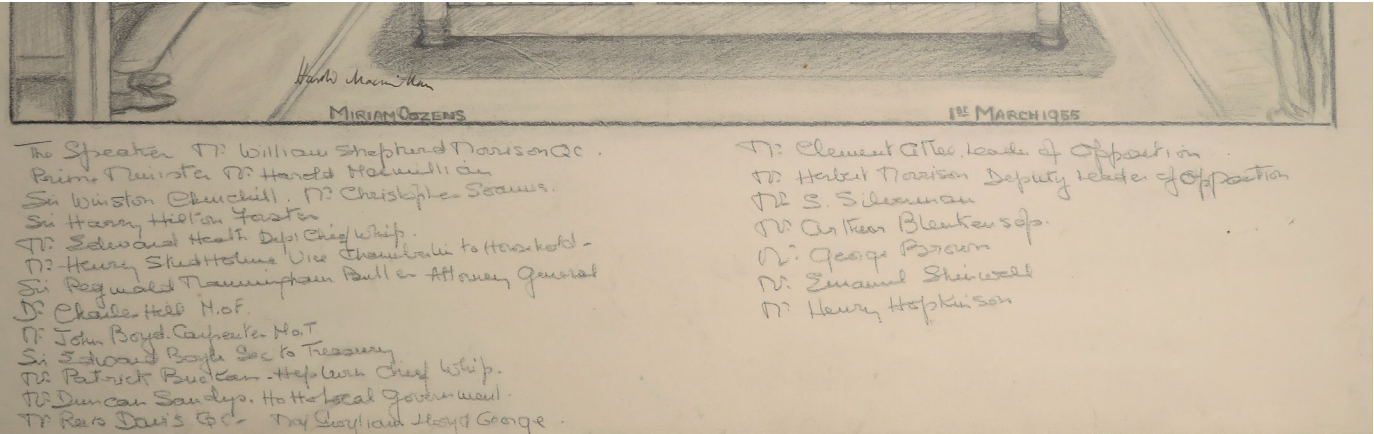 Harold Macmillan
MIRIAM COZENS
1st MARCH 1955
The Speaker Mr. William Shepherd Morrison QC.
Prime Minister Mr Harold Macmillian
Sir Winston Churchill. Mr Christopher Soames.
Sir Harry Hilton Forster
Mr. Edward Heath Dep: Chief Whip.
Mr. Henry StudHolme Vice Chamberlin to Household -
Sir Reginald Manningham Buller Attorney General
Dr Charles Hill M.of.
Mr. John Boyd. Carpenter Mo.T
Sir Edward Boyle Sec to Treasury
Mr. Patrick Buckan-Hepburn Chief Whip.
Mr. Duncan Sandys. Local Government.
Mr Rees Davis QC- Lloyd George.
Mr. Clement Attlee, Leader of Opposition
Mr. Herbert Morrison Deputy Leader of Opposition
Mr S. Silverman
Mr. Arthur Blenkensop.
Mr. George Brown
Mr. Emanuel Shinwell
Mr. Henry Hopkinson